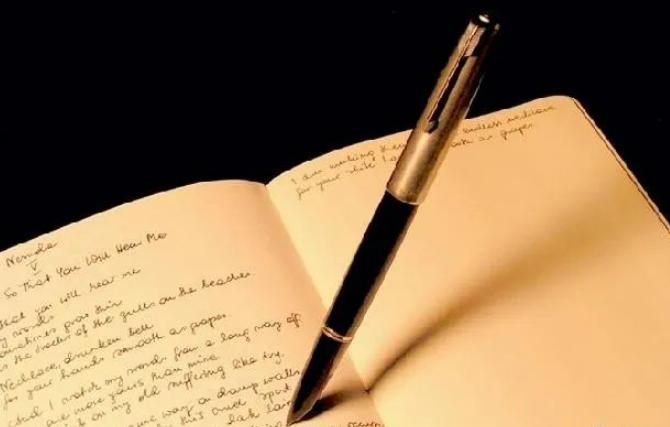 Neruda
V
So That You Will Hear Me
that you will hear me
my words
sometimes grow thin
as the tracks of the gulls on the beaches.
Necklace, drunken bell
for your hands smooth as grapes.
And I watch my words from a long way off
are more yours than mine.
on my old suffering like ivy.
same way on damp walls
this cruel sport
dark lair
I am making them endless necklace
for your white as grapes